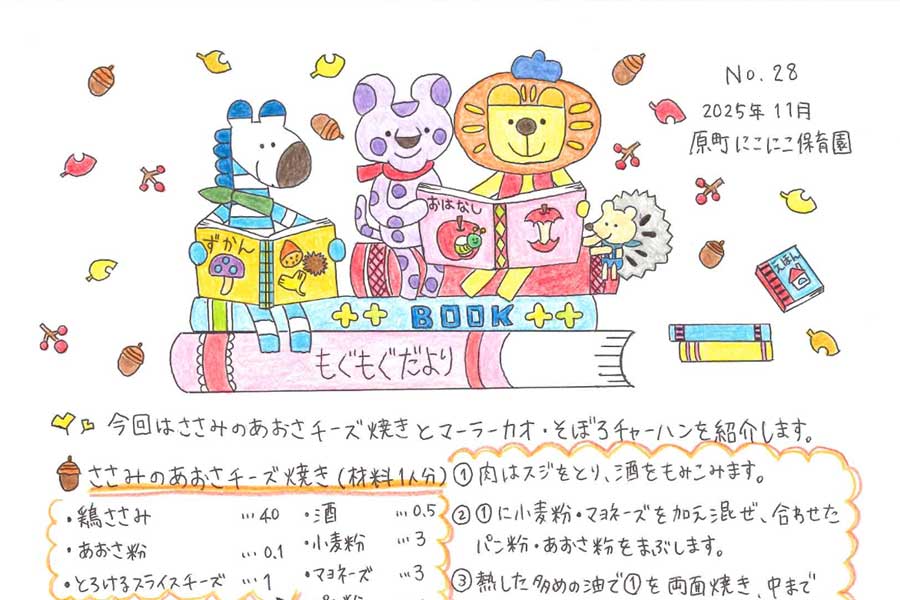 No. 28
2025年 11月
原町にこにこ保育園
ずかん
おはなし
えほん
BOOK
もぐもぐだより
今回はささみのあおさチーズ焼きとマーラーカオ・そぼろチャーハンを紹介します。
ささみのあおさチーズ焼き(材料1人分)
・鶏ささみ …40
・あおさ粉 …0.1
・とろけるスライスチーズ …1
・酒 …0.5
・小麦粉 …3
・マヨネーズ …3
①肉はスジをとり、酒をもみこみます。
②①に小麦粉・マヨネーズを加え混ぜ、合わせた
パン粉・あおさ粉をまぶします。
③熱した多めの油で①を両面焼き、中まで